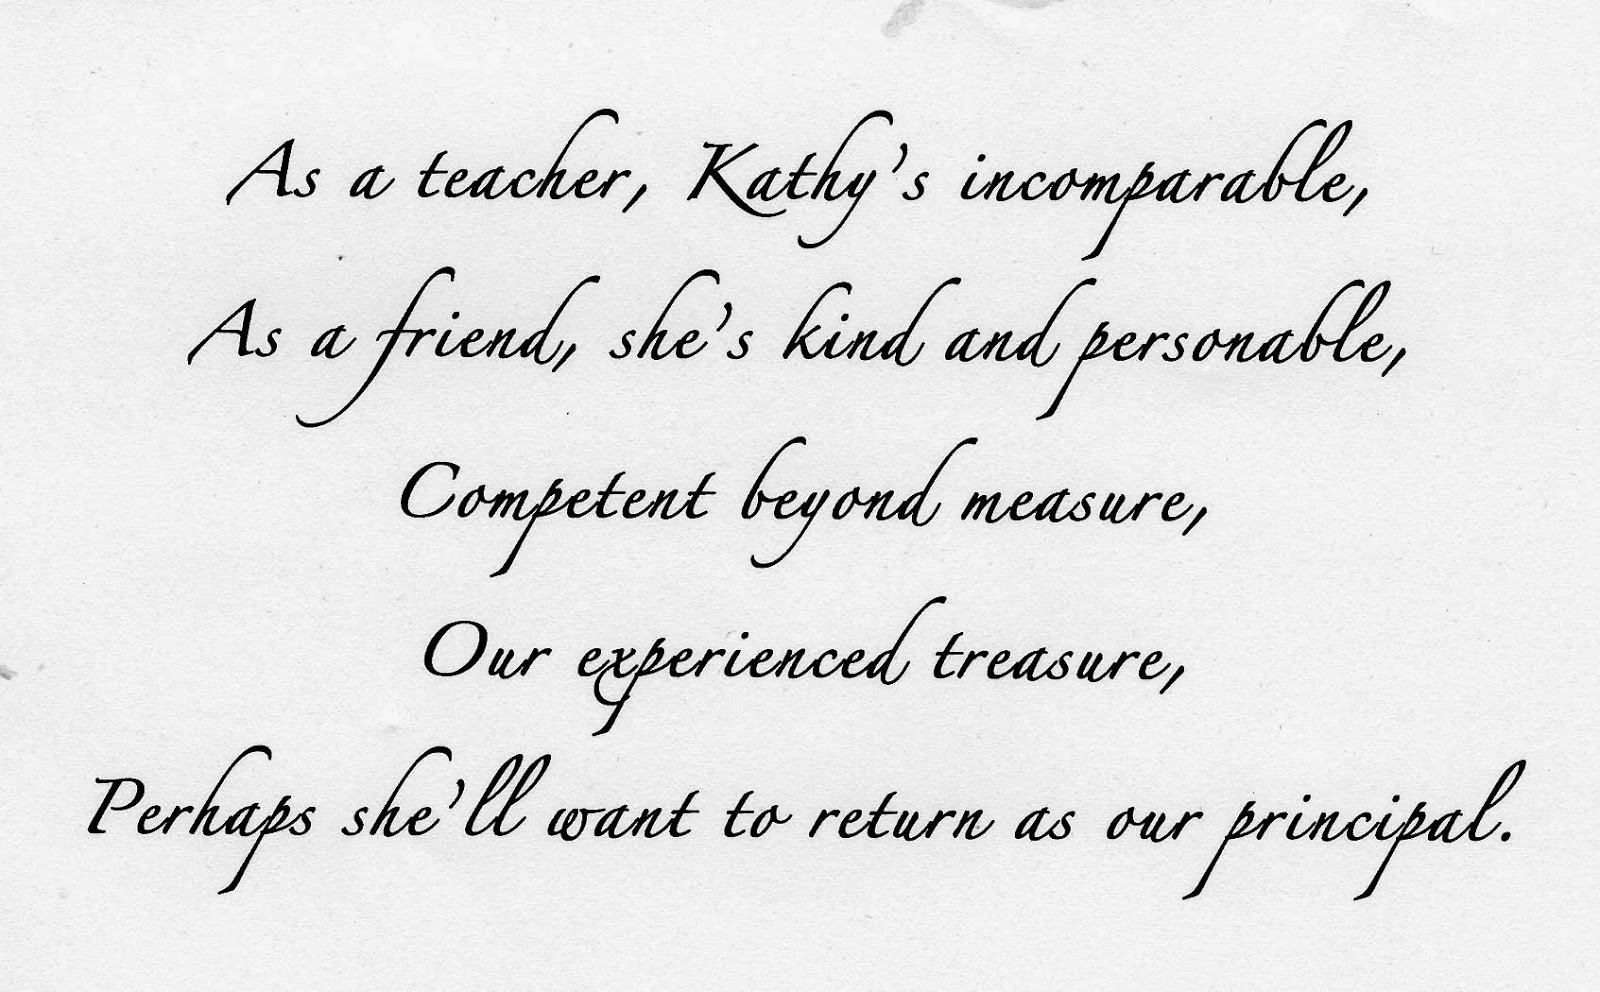 As a teacher, Kathy's incomparable,
As a friend, she's kind and personable,
Competent beyond measure,
Our experienced treasure,
Perhaps she'll want to return as our principal.